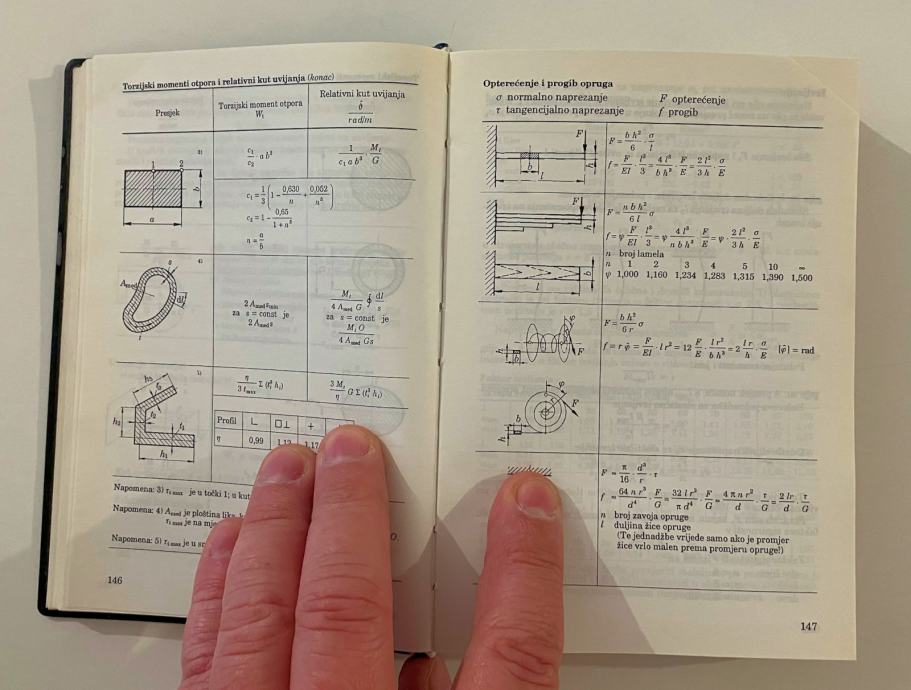 Torzijski momenti otpora i relativni kut uvijanja (konac)
Presjek
Torzijski moment otpora
Wₜ
Relativni kut uvijanja
rad/m
3)
1 2
b
a
c₁/c₂ · a b²
1/(c₁ a b³) · Mₜ/G
c₁ = 1/3 (1 − 0,630/n + 0,052/n⁵)
c₂ = 1 − 0,65/(1 + n³)
n = a/b
4)
s
Aₘₑd
dl
t
2 Aₘₑd sₘᵢₙ
za s = const je
2 Aₘₑd s
Mₜ/(4 Aₘₑd G) ∮ dl/s
za s = const je
Mₜ O/(4 Aₘₑd Gs)
5)
h₃
h₂
t₂
t₁
h₁
η/(3 tₘₐₓ) Σ (tᵢ³ hᵢ)
3 Mₜ/η G Σ (tᵢ³ hᵢ)
Profil ∟ □⊥ +
η 0,99 1,12 1,17
Napomena: 3) τₜ ₘₐₓ je u točki 1; u
Napomena: 4) Aₘₑd je ploština
τₜ ₘₐₓ je na
Napomena: 5) τₜ ₘₐₓ je u
146
Opterećenje i progib opruga
σ normalno naprezanje F opterećenje
τ tangencijalno naprezanje f progib
F
h
b
l
F = b h²/6 · σ/l
f = F/EI · l³/3 = 4 l³/b h³ · F/E = 2 l²/3 h · σ/E
F
h
b
l
F = n b h²/6 l σ
f = ψ F/EI · l³/3 = ψ 4 l³/n b h³ · F/E = ψ · 2 l²/3 h · σ/E
n broj lamela
n 1 2 3 4 5 10 ∞
ψ 1,000 1,160 1,234 1,283 1,315 1,390 1,500
φ
h
b
F
F = b h²/6 r σ
f = r φ̂ = F/EI · l r² = 12 F/E · l r²/b h³ = 2 l r/h · σ/E [φ̂] = rad
φ
b
h
F
F = π/16 · d³/r · τ
f = 64 n r³/d⁴ · F/G = 32 l r²/π d⁴ · F/G = 4 π n r²/d · τ/G = 2 l r/d · τ/G
n broj zavoja opruge
l duljina žice opruge
(Te jednadžbe vrijede samo ako je promjer
žice vrlo malen prema promjeru opruge!)
147